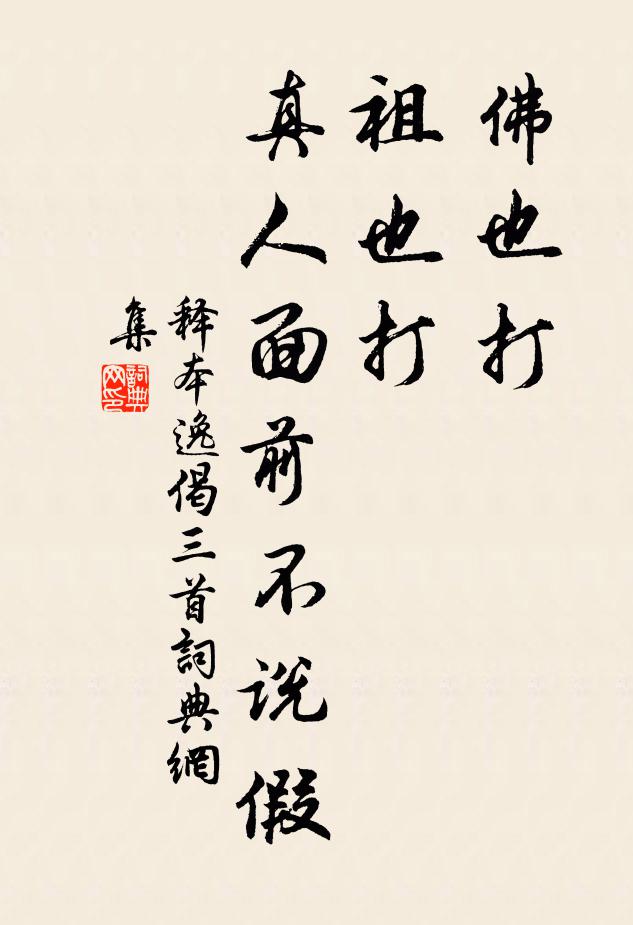 佛也打
祖也打
真人面前不说假
释本逸偈三首詞典網
集
詞典
网印